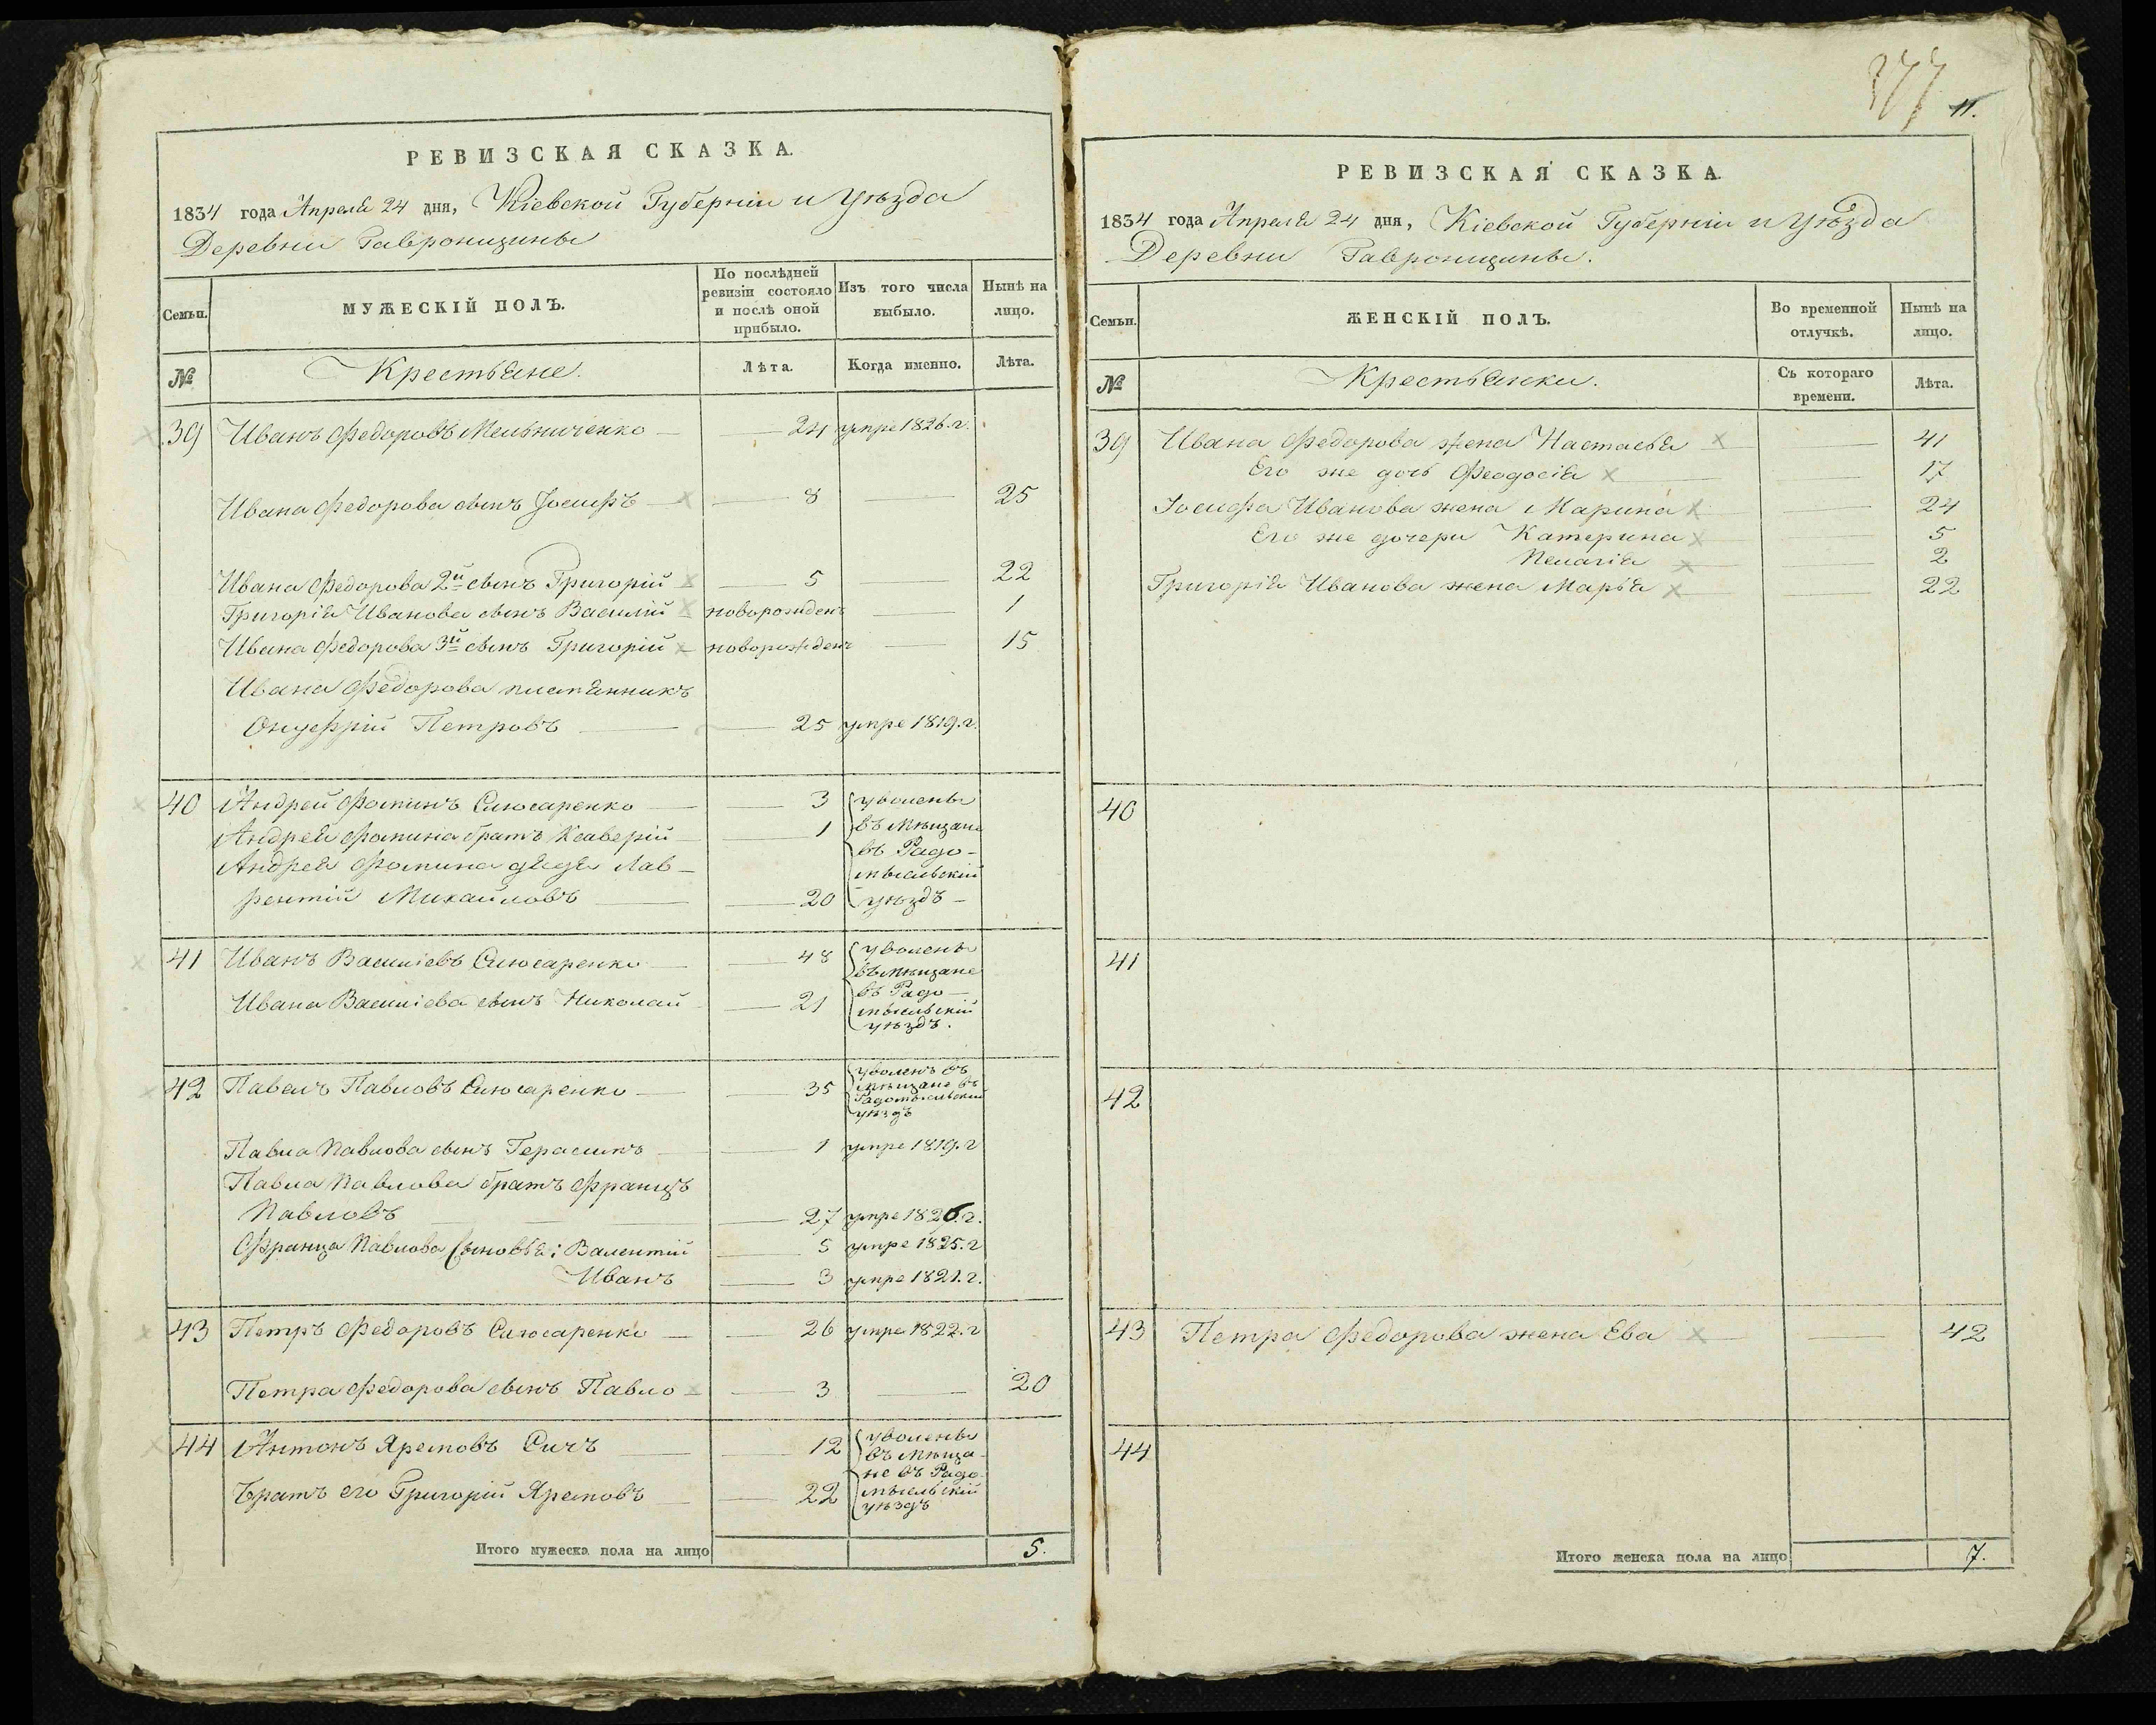 РЕВИЗСКАЯ СКАЗКА.
1834 года Апреля 24 дня, Кіевской Губерніи и Уѣзда
Деревни Гавронщины
Семьи.
МУЖЕСКІЙ ПОЛЪ.
По послѣдней ревизіи состояло и послѣ оной прибыло.
Изъ того числа выбыло.
Нынѣ на лицо.
№
Крестьяне.
Лѣта.
Когда именно.
Лѣта.
39 Иванъ Федоровъ Мельниченко 24 умре 1826. г.
Ивана Федорова сынъ Іосифъ 8 25
Ивана Федорова 2й сынъ Григорій 5 22
Григорія Иванова сынъ Василій новорожденъ 1
Ивана Федорова 3й сынъ Григорій новорожденъ 15
Ивана Федорова племянникъ
Онуфрій Петровъ 25 умре 1819. г.
40 Андрей Фоминъ Слюсаренко 3 уволены
Андрея Фомина братъ Ксаверій 1 въ мѣщане
Андрея Фомина дядя Лав- въ Радо-
мысльскій
рентій Михайловъ 20 уѣздъ
41 Иванъ Василіевъ Слюсаренко 48 уволены
въ мѣщане
Ивана Василіева сынъ Николай 21 въ Радо-
мысльскій
уѣздъ.
42 Павелъ Павловъ Слюсаренко 35 уволенъ въ
мѣщане въ
Радомысльскій
уѣздъ
Павла Павлова сынъ Герасимъ 1 умре 1819. г
Павла Павлова братъ Францъ
Павловъ 27 умре 1826. г.
Франца Павлова Сыновья: Валентій 5 умре 1825. г
Иванъ 3 умре 1821. г.
43 Петръ Федоровъ Слюсаренко 26 умре 1822. г
Петра Федорова сынъ Павло 3 20
44 Антонъ Яремовъ Сичъ 12 уволены
въ мѣща-
не въ Радо-
Братъ его Григорій Яремовъ 22 мысльскій
уѣздъ
Итого мужеска пола на лицо 5.
11.
РЕВИЗСКАЯ СКАЗКА.
1834 года Апреля 24 дня, Кіевской Губерніи и Уѣзда
Деревни Гавронщины.
Семьи.
ЖЕНСКІЙ ПОЛЪ.
Во временной отлучкѣ.
Нынѣ на лицо.
№
Крестьянки.
Съ котораго времени.
Лѣта.
39 Ивана Федорова жена Настасья 41
Его же дочь Феодосія 17
Іосифа Иванова жена Марина 24
Его же дочери Катерина 5
Пелагія 2
Григорія Иванова жена Марья 22
40
41
42
43 Петра Федорова жена Ева 42
44
Итого женска пола на лицо 7.